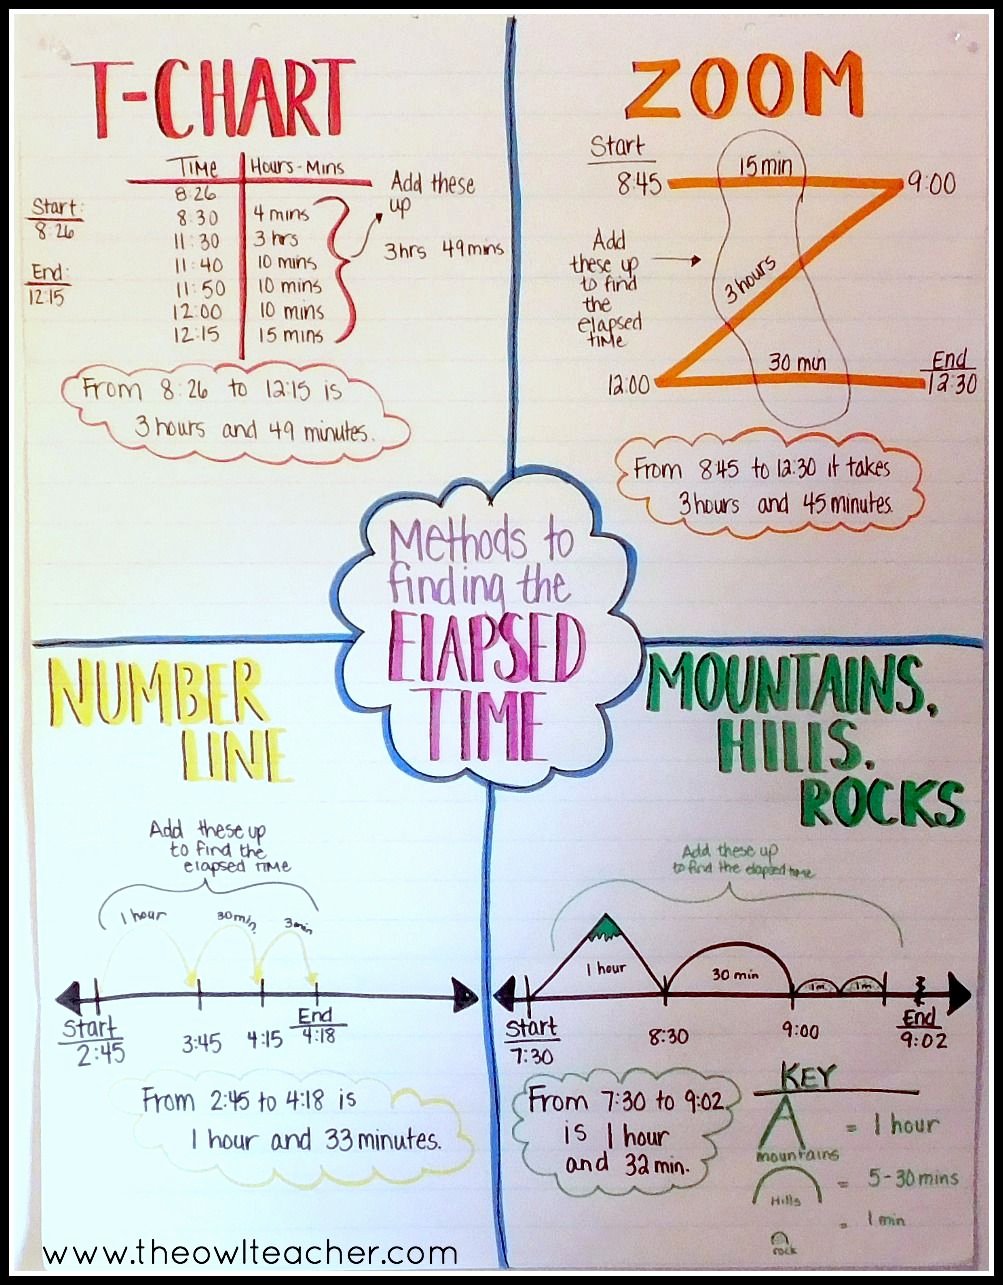 T-CHART
Time Hours-Mins
8:26
8:30 4 mins
11:30 3 hrs
11:40 10 mins
11:50 10 mins
12:00 10 mins
12:15 15 mins
Start:
8:26
End:
12:15
Add these
up
3hrs 49mins
From 8:26 to 12:15 is
3 hours and 49 minutes.
ZOOM
Start
8:45
15 min
9:00
Add
these up
to find
the
elapsed
time
3 hours
12:00
30 min
End
12:30
From 8:45 to 12:30 it takes
3 hours and 45 minutes.
Methods to
finding the
ELAPSED
TIME
NUMBER
LINE
Add these up
to find the
elapsed time
1 hour 30 min. 3 min
Start
2:45
3:45
4:15
End
4:18
From 2:45 to 4:18 is
1 hour and 33 minutes.
MOUNTAINS,
HILLS,
ROCKS
Add these up
to find the elapsed time
1 hour 30 min 1m 1m
Start
7:30
8:30
9:00
End
9:02
From 7:30 to 9:02
is 1 hour
and 32 min.
KEY
mountains = 1 hour
Hills = 5-30 mins
rock = 1 min
www.theowlteacher.com